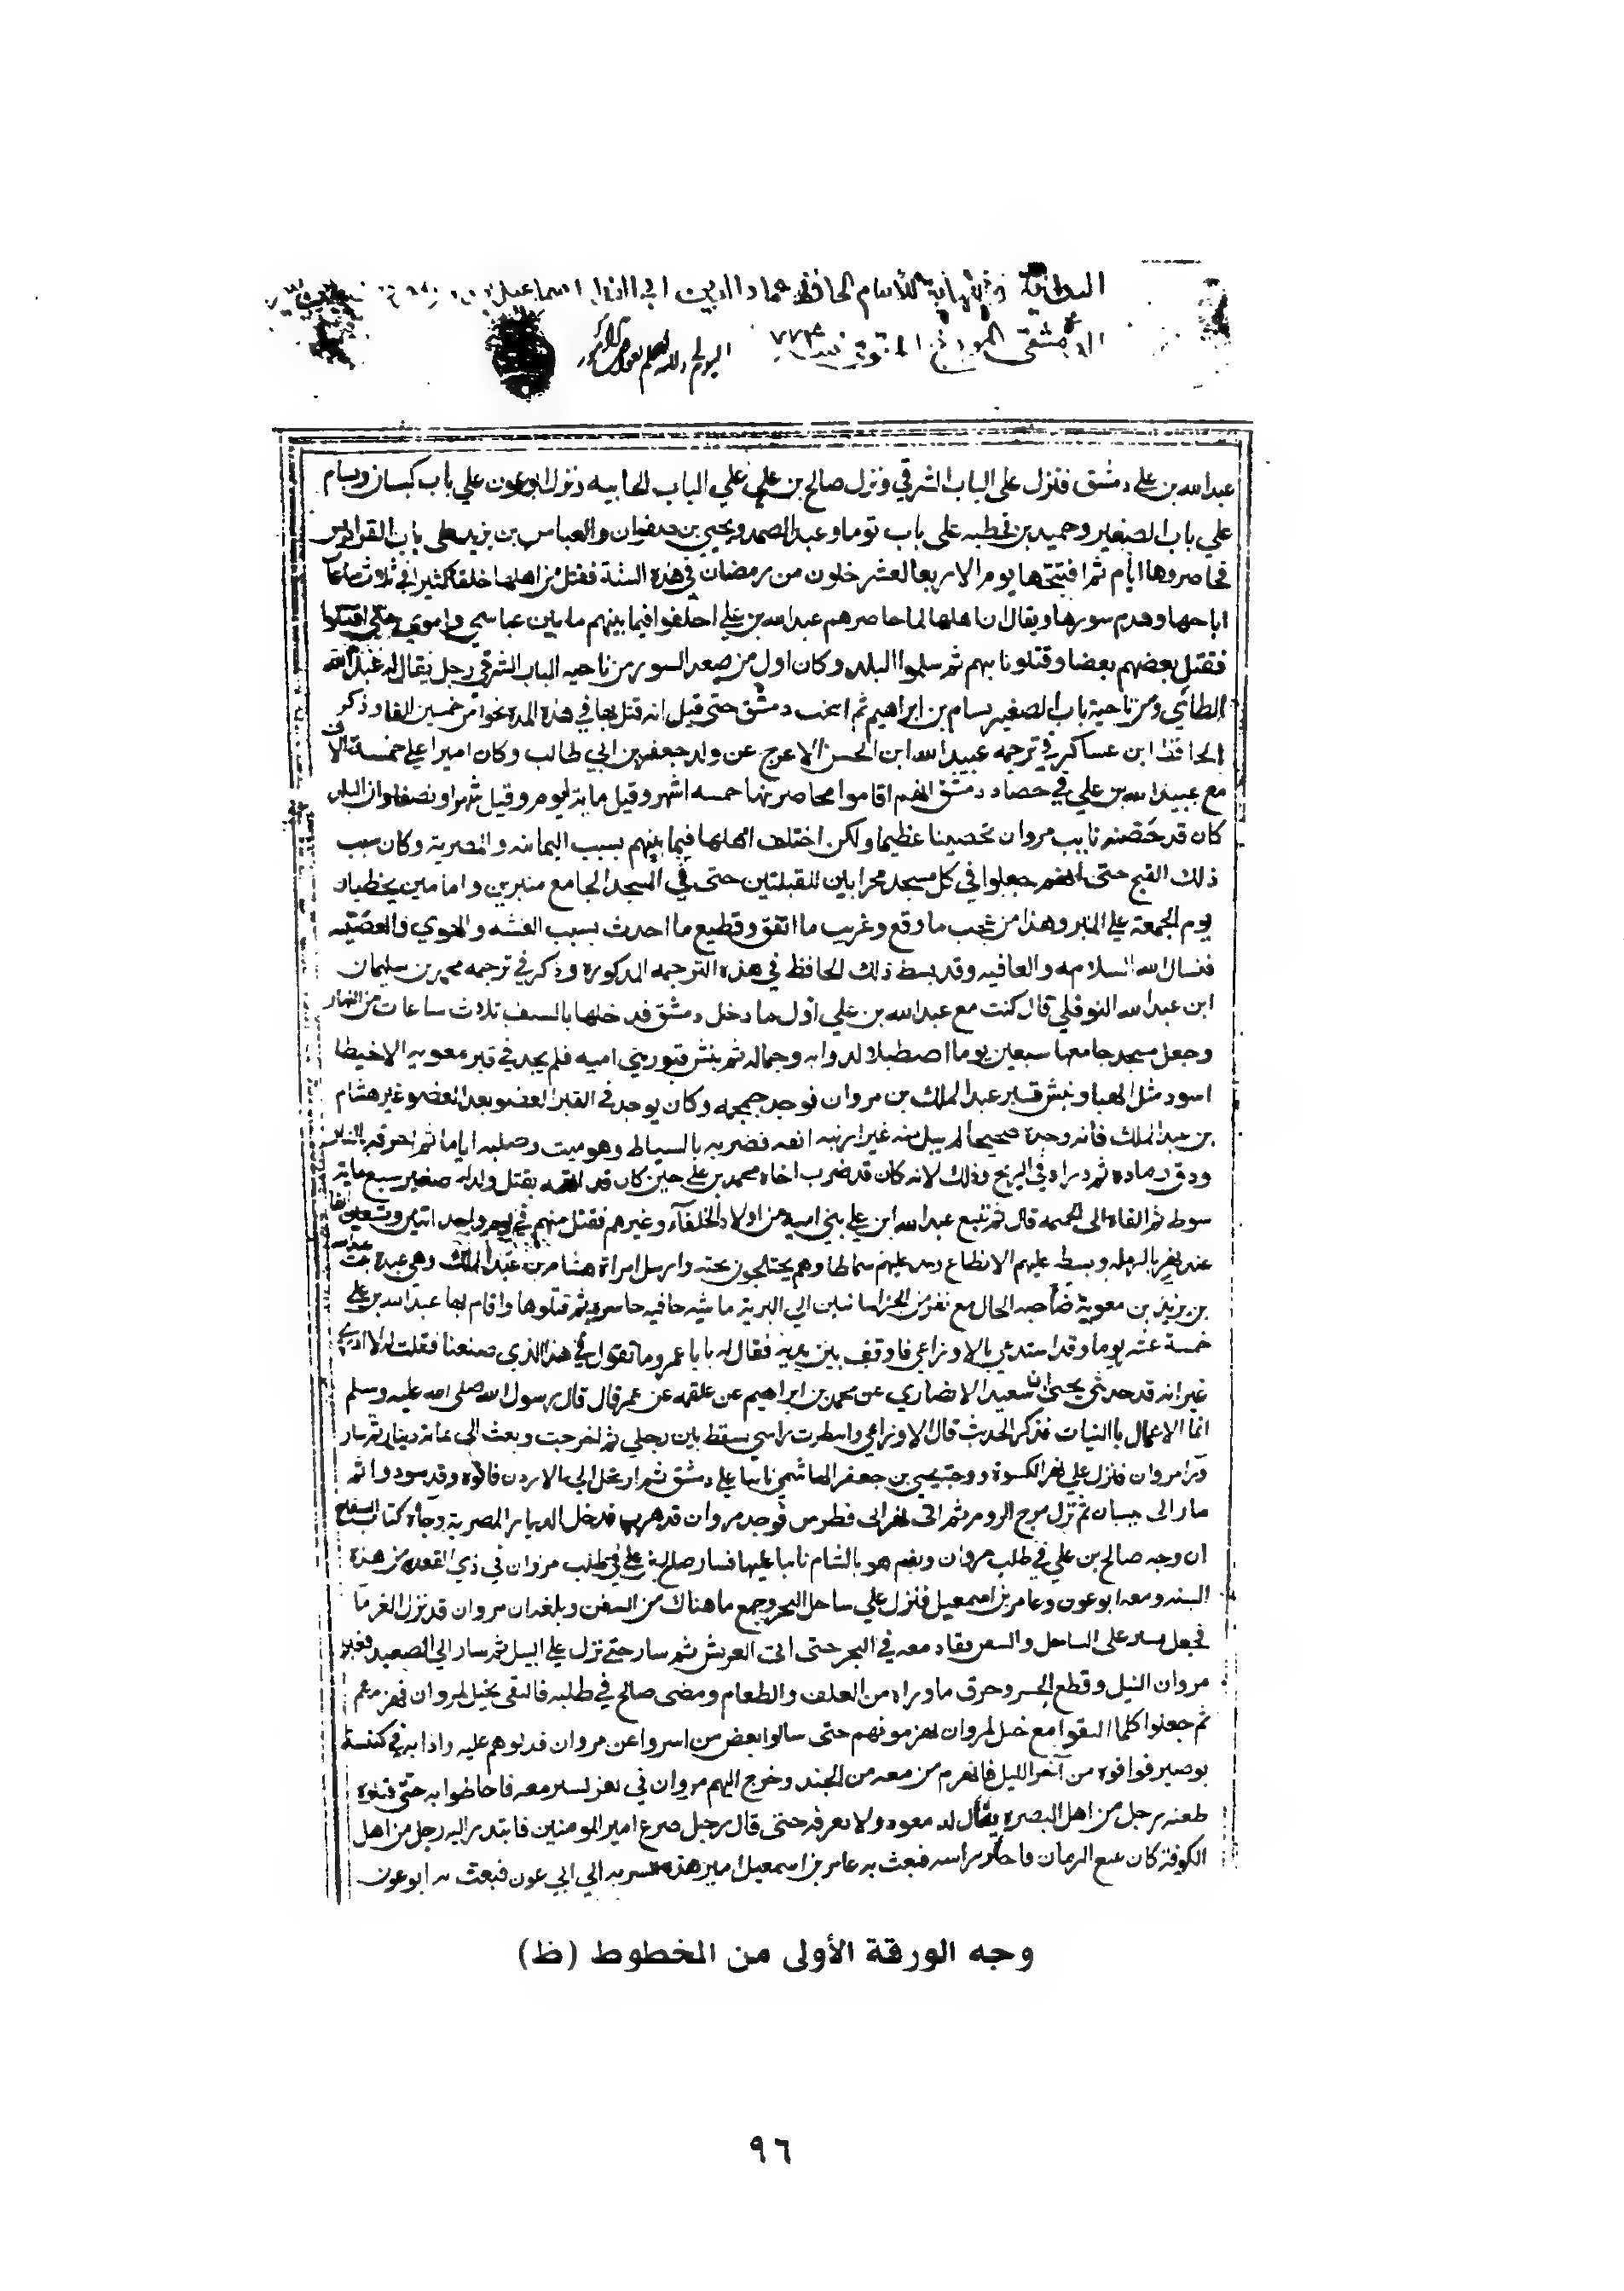 للامام الحافظ عماد الدين ابي الفدا اسماعيل
الدمشقي المورخ المتوفى سنة ٧٧٤
عبد الله بن علي دمشق فنزل على الباب الشرقي ونزل صالح بن علي علي الباب الجابيه ونزل ابو عون علي باب كيسان وبسام
علي باب الصغير وحميد بن قحطبه على باب توما وعبد الصمد ويحيى بن صفوان والعباس بن يزيد على باب الفراديس
فحاصروها ايام ثم افتتحها يوم الاربعا لعشر خلون من رمضان في هذه السنة فقتل من اهلها خلقا كثيرا في ثلاث ساعات
اباحها وهدم سورها ويقال ان اهلها لما حاصرهم عبد الله بن علي اختلفوا فيما بينهم ما بين عباسي واموي حتى اقتتلوا
فقتل بعضهم بعضا وقتلوا نايبهم ثم سلموا البلد وكان اول من صعد السور من ناحيه الباب الشرقي رجل يقال له عبد الله
الطائي ومن ناحية باب الصغير بسام بن ابراهيم ثم ابيحت دمشق حتى قيل انه قتل بها في هذه المدة نحوا من خمسين الفا وذكر
الحافظ ابن عساكر في ترجمه عبيد الله ابن الحسن الاعرج عن ولد جعفر بن ابي طالب وكان اميرا علي خمسة الاف
مع عبيد الله بن علي في حصار دمشق انهم اقاموا محاصريها خمسه اشهر وقيل ماية يوم وقيل شهرا ونصفا وان البلد
كان قد حصنه نايب مروان تحصينا عظيما ولكن اختلف اهلها فيما بينهم بسبب اليمانيه والمضرية وكان سبب
ذلك الفتح حتى انهم جعلوا في كل مسجد محرابين للقبلتين حتى في المسجد الجامع منبرين وامامين يخطبان
يوم الجمعة علي المنبر وهذا من عجب ما وقع وغريب ما اتفق وقطيع ما احدث بسبب الفتنه والهوي والعصبيه
فنسال الله السلامه والعافيه وقد بسط ذلك الحافظ في هذه الترجمه المذكورة وذكر في ترجمه محمد بن سليمان
ابن عبد الله النوفلي قال كنت مع عبد الله بن علي اول ما دخل دمشق فدخلها بالسيف ثلاث ساعات من النهار
وجعل مسجد جامعها سبعين يوما اصطبلا لدوابه وجماله ثم نبش قبور بني اميه فلم يجد في قبر معويه الا خيطا
اسود مثل الهبا ونبش قبر عبد الملك بن مروان فوجد جمجمه وكان يوجد في القبر العضو بعد العضو غير هشام
بن عبد الملك فانه وجده صحيحا لم يبل منه غير ارنبه انفه فضربه بالسياط وهو ميت وصلبه اياما ثم احرقه بالنار
ودق رماده ثم ذراه في الريح وذلك لانه كان قد ضرب اخاه محمد بن علي حين كان قد اتهمه بقتل ولد له صغير سبع ماية
سوط ثم نفاه الى الحميمه قال ثم تتبع عبد الله ابن علي بني اميه من اولاد الخلفاء وغيرهم فقتل منهم في يوم واحد اثنين وتسعين الفا
عند نهر بالرمله وبسط عليهم الانطاع ومد عليهم سماطا وهم يختلجون تحته وارسل امراة هشام بن عبد الملك وهي عبدة بنت عبد الله
بن يزيد بن معوية صاحبه الخال مع نفر من الخراسانيين الي البرية ماشيه حافيه حاسره ثم قتلوها واقام بها عبد الله بن علي
خمسة عشر يوما وقد استدعي بالاوزاعي فاوقف بين يديه فقال له يابا عمرو ما تقول في هذا الذي صنعنا فقلت له لا ادري
غير انه قد حدثني يحيى بن سعيد الانصاري عن محمد بن ابراهيم عن علقمه عن عمر قال قال رسول الله صلى الله عليه وسلم
انما الاعمال باالنيات فذكر الحديث قال الاوزاعي وانتظرت راسي يسقط بين رجلي ثم اخرجت وبعث الي بمائة دينار ثم سار
ورا مروان فنزل علي نهر الكسوة ووجه يحيى بن جعفر الهاشمي نايبا علي دمشق ثم ارتحل الي الاردن فاتوه وقد سودوا ثم
سار الى بيسان ثم نزل مرج الروم ثم اتى نهر ابي فطرس فوجد مروان قد هرب فدخل الديار المصرية وجاه كتاب السفاح
ان وجه صالح بن علي في طلب مروان ويقيم هو بالشام نايبا عليها فسار صالح بن علي في طلب مروان في ذي القعده من هذه
السنه ومعه ابو عون وعامر بن اسمعيل فنزل علي ساحل البحر وجمع ما هناك من السفن وبلغه ان مروان قد نزل الفرما
فجعل يسير على الساحل والسفن تقاد معه في البحر حتى اتى العريش ثم سار حتى نزل علي النيل ثم سار الي الصعيد فعبر
مروان النيل وقطع الجسر وحرق ما وراه من العلف والطعام ومضى صالح في طلبه فالتقى بخيل لمروان فهزمهم
ثم جعلوا كلما التقوا مع خيل لمروان يهزمونهم حتى سالوا بعض من اسروا عن مروان فدلوهم عليه واذا به في كنيسة
بوصير فوافوه من آخر الليل فانهزم من معه من الجند وخرج اليهم مروان في نفر يسير معه فاحاطوا به حتى قتلوه
طعنه رجل من اهل البصرة يقال له معود ولا يعرفه حتى قال رجل صرع امير المومنين فابتدر اليه رجل من اهل
الكوفة كان يبيع الرمان فاحتز راسه فبعث به عامر بن اسمعيل امير هذه السريه الي ابي عون فبعث به ابو عون
وجه الورقة الأولى من المخطوط (ظ)
٩٦